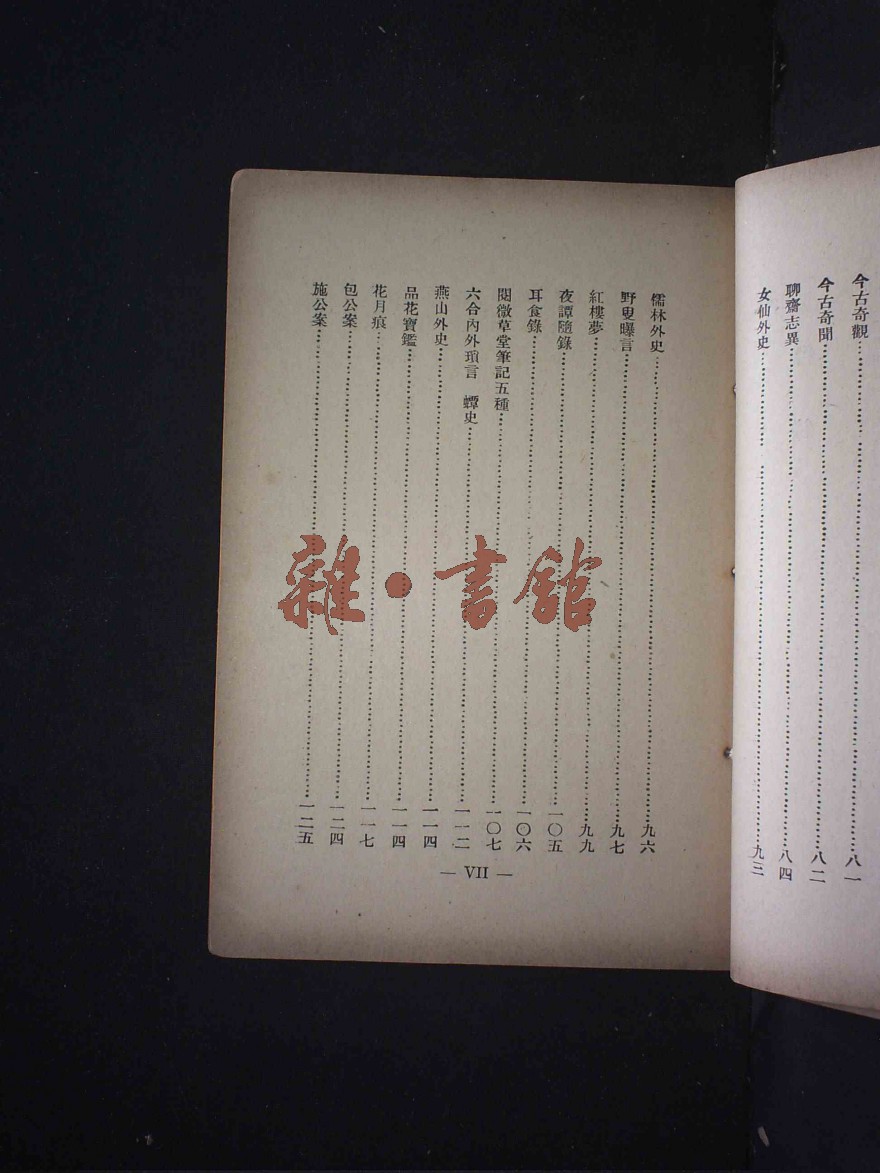 今古奇觀……八一
今古奇聞……八二
聊齋志異……八四
女仙外史……九三
儒林外史……九六
野叟曝言……九七
紅樓夢……九九
夜譚隨錄……一〇五
耳食錄……一〇六
閱微草堂筆記五種……一〇七
六合內外瑣言　蟫史……一一二
燕山外史……一一四
品花寶鑑……一一四
花月痕……一一七
包公案……一二四
施公案……一二五
— VII —
雜·書館